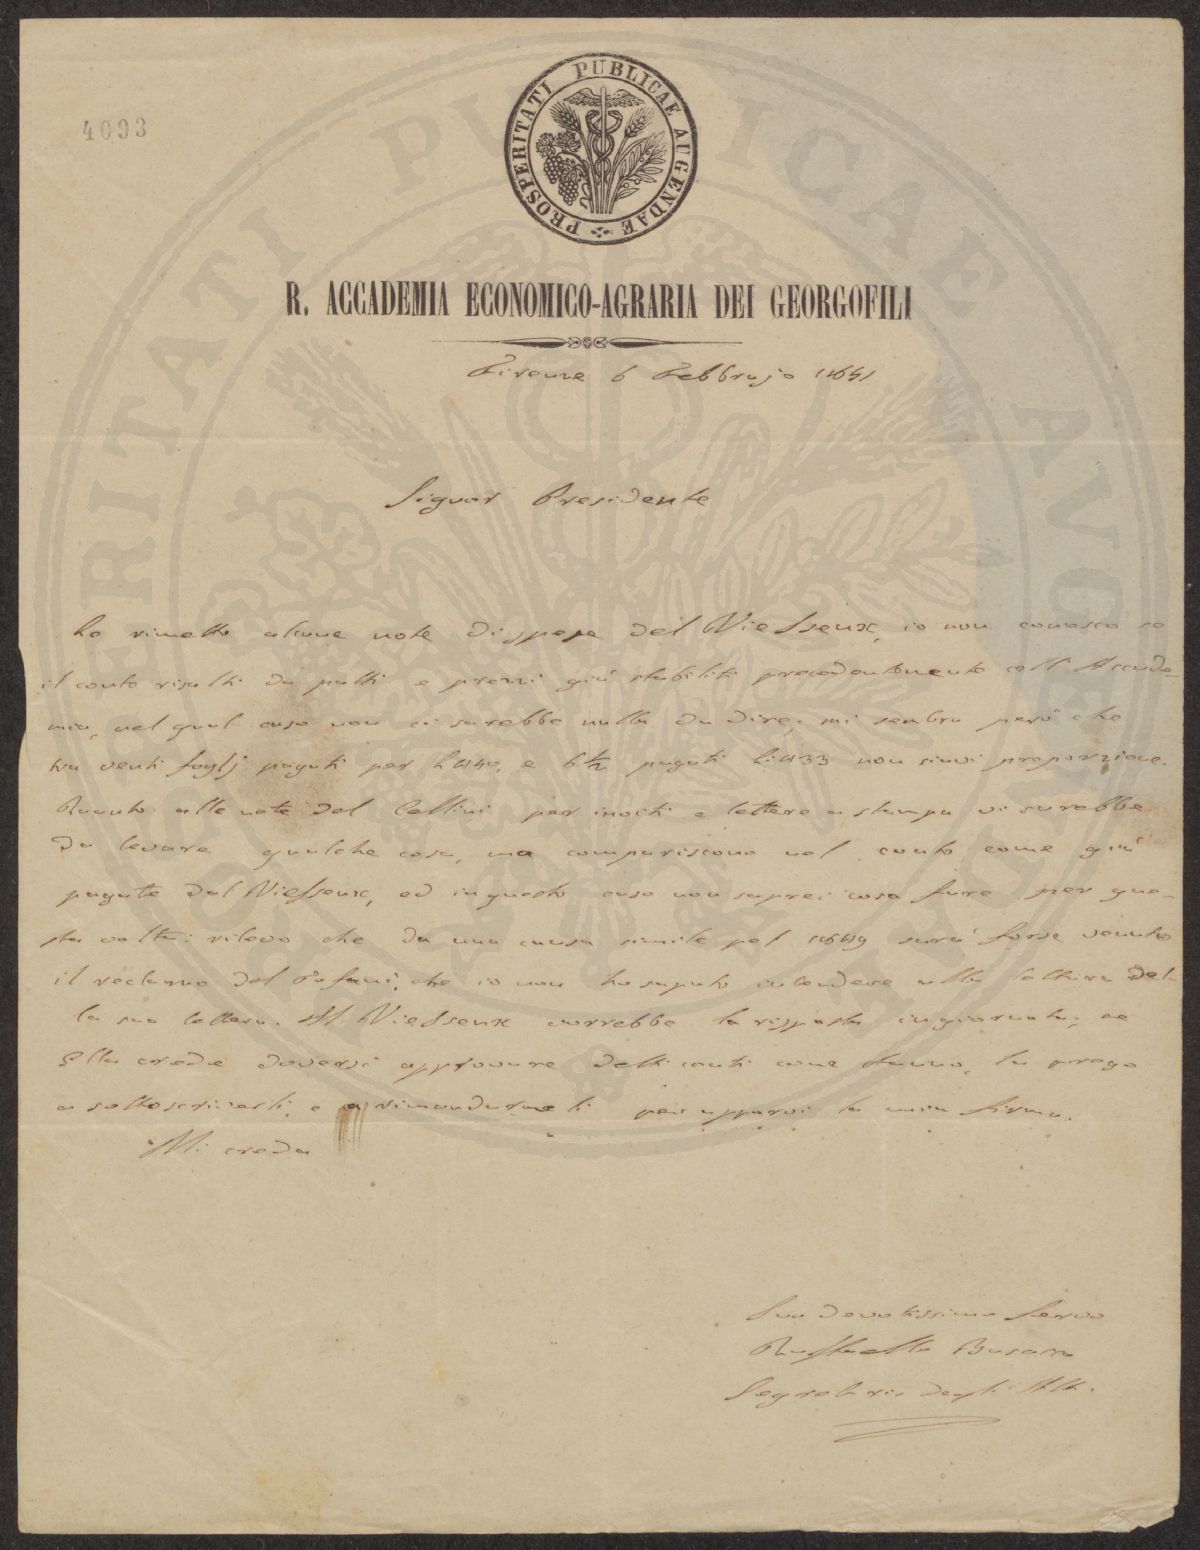 4093
PROSPERITATI PUBLICAE AUGENDAE
R. ACCADEMIA ECONOMICO-AGRARIA DEI GEORGOFILI
Firenze 6 Febbrajo
Signor Presidente
Le rimetto alcune note di spese del Viesseux, io non conosco se
il conto risulti da patti e prezzi già stabiliti precedentemente coll'Accade-
mia, nel qual caso non ci sarebbe nulla da dire; mi sembra però che
tra venti foglj pagati per e 6½ pagati non siavi proporzione.
Quanto alle note del Cellini per inviti e lettere a stampa vi sarebbe
da levare qualche cosa, ma compariscono nel conto come già
pagate dal Viesseux, ed in questo caso non saprei cosa fare per que-
sta volta: rilevo che da una causa simile pel sarà forse venuto
il reclamo del che io non ho saputo intendere alla lettura del-
la sua lettera. Il Viesseux vorrebbe la risposta in giornata; se
Ella crede doversi approvare detti conti come stanno, la prego
a sottoscriverli, e a rimandarmeli per apporvi la mia firma.
Mi creda
Suo devotissimo Servo
Raffaello Busacca
Segretario degli Atti.